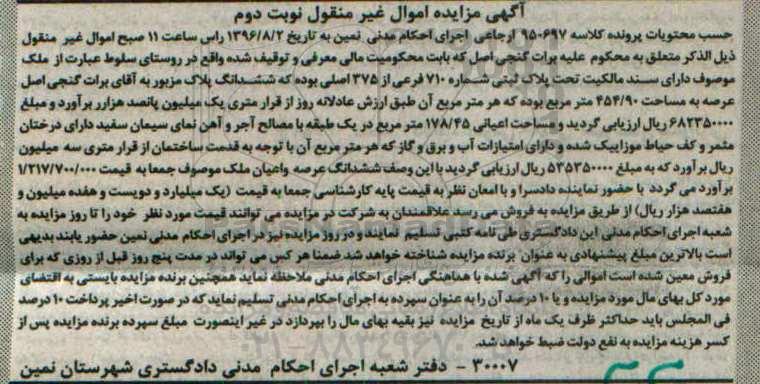 آگهی مزایده اموال غیر منقول نوبت دوم
حسب محتویات پرونده کلاسه ۹۵۰۶۹۷ ارجاعی اجرای احکام مدنی نمین به تاریخ ۱۳۹۶/۸/۲ راس ساعت ۱۱ صبح اموال غیر منقول
ذیل الذکر متعلق به محکوم علیه برات گنجی اصل که بابت محکومیت مالی معرفی و توقیف شده واقع در روستای سلوط عبارت از ملک
موصوف دارای سند مالکیت تحت پلاک ثبتی شماره ۷۱۰ فرعی از ۳۷۵ اصلی بوده که ششدانگ پلاک مزبور به آقای برات گنجی اصل
عرصه به مساحت ۴۵۴/۹۰ متر مربع بوده که هر متر مربع آن طبق ارزش عادلانه روز از قرار متری یک میلیون پانصد هزارر برآورد و مبلغ
۶۸۲۳۵۰۰۰۰ ریال ارزیابی گردید و مساحت اعیانی ۱۷۸/۴۵ متر مربع در یک طبقه با مصالح آجر و آهن نمای سیمان سفید دارای درختان
مثمر و کف حیاط موزاییک شده و دارای امتیازات آب و برق و گاز که هر متر مربع آن با توجه به قدمت ساختمان از قرار متری سه میلیون
ریال بر آورد که به مبلغ ۵۳۵۳۵۰۰۰۰ ریال ارزیابی گردید با این وصف ششدانگ عرصه واعیان ملک موصوف جمعا به قیمت ۱/۲۱۷/۷۰۰/۰۰۰
برآورد می گردد با حضور نماینده دادسرا و با امعان نظر به قیمت پایه کارشناسی جمعا به قیمت (یک میلیارد و دویست و هفده میلیون و
هفتصد هزار ریال) از طریق مزایده به فروش می رسد علاقمندان به شرکت در مزایده می توانند قیمت مورد نظر خود را تا روز مزایده به
شعبه اجرای احکام مدنی این دادگستری طی نامه کتبی تسلیم نمایند و در روز مزایده نیز در اجرای احکام مدنی نمین حضور یابند بدیهی
است بالاترین مبلغ پیشنهادی به عنوان برنده مزایده شناخته خواهد شد ضمنا هر کس می تواند در مدت پنج روز قبل از روزی که برای
فروش معین شده است اموالی را که آگهی شده با هماهنگی اجرای احکام مدنی ملاحظه نماید همچنین برنده مزایده بایستی به اقتضای
مورد کل بهای مال مورد مزایده و یا ۱۰ درصد آن را به عنوان سپرده به اجرای احکام مدنی تسلیم نماید که در صورت اخیر پرداخت ۱۰ درصد
فی المجلس باید حداکثر ظرف یک ماه از تاریخ مزایده نیز بقیه بهای مال را بپردازد در غیر اینصورت مبلغ سپرده برنده مزایده پس از
کسر هزینه مزایده به نفع دولت ضبط خواهد شد.
۳۰۰۰۷ - دفتر شعبه اجرای احکام مدنی دادگستری شهرستان نمین